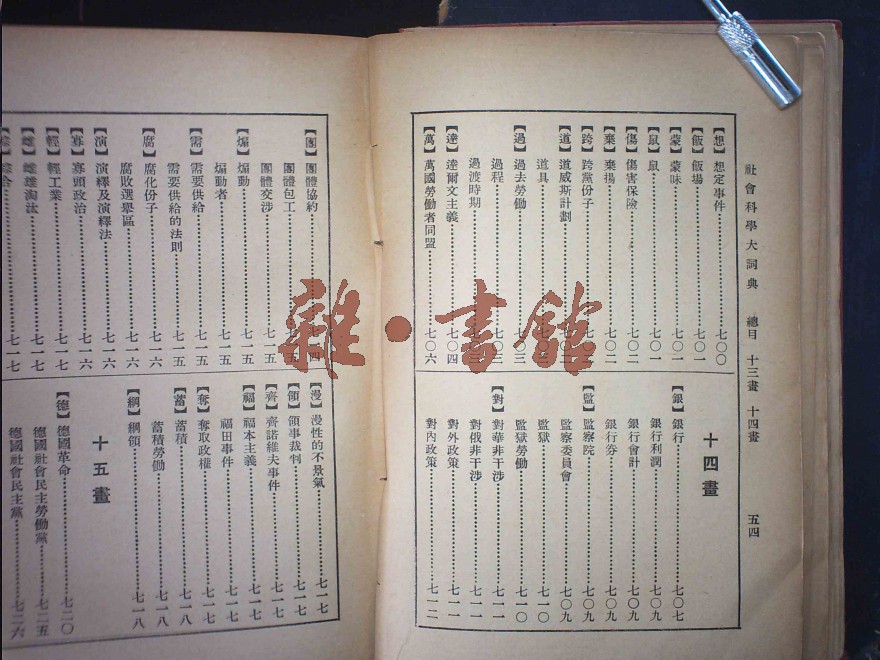 社會科學大詞典 總目 十三畫 十四畫 五四
【想】想定事件……七〇〇
【飯】飯場……七〇一
【蒙】蒙昧……七〇一
【鼠】鼠……七〇一
【傷】傷害保險……七〇二
【棄】棄揚……七〇二
【跨】跨黨份子
【道】道威斯計劃
道具
【過】過去勞働……七〇三
過程
過渡時期
【達】達爾文主義……七〇四
【萬】萬國勞働者同盟……七〇六
十四畫
【銀】銀行……七〇七
銀行利潤……七〇九
銀行會計……七〇九
銀行券……七〇九
【監】監察院……七〇九
監察委員會……七〇九
監獄……七一〇
監獄勞働……七一〇
【對】對華非干涉……七一一
對俄非干涉……七一一
對外政策……七一一
對內政策……七一二
【團】團體協約
團體包工
團體交涉……七一五
【煽】煽動……七一五
煽動者……七一五
【需】需要供給……七一五
需要供給的法則……七一五
【腐】腐化份子……七一六
腐敗選舉區……七一六
【演】演繹及演繹法……七一六
【寡】寡頭政治……七一六
【輕】輕工業……七一七
【雌】雌雄淘汰……七一七
……七一七
【漫】漫性的不景氣……七一七
【領】領事裁判……七一七
【齊】齊諾維夫事件……七一七
【福】福本主義……七一七
福田事件……七一七
【奪】奪取政權……七一七
【蓄】蓄積……七一八
蓄積勞働……七一八
【綱】綱領……七一八
十五畫
【德】德國革命……七二〇
德國社會民主勞働黨……七二五
德國社會民主黨……七二六
雜·書館